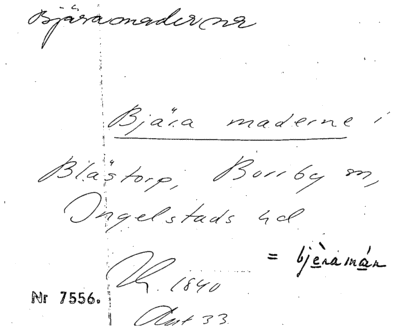 Bjäramaderna
Bjära maderne i
Blästorp, Borrby sn,
Ingelstads hd
= bjèramán
1840
Nr 7556.
33